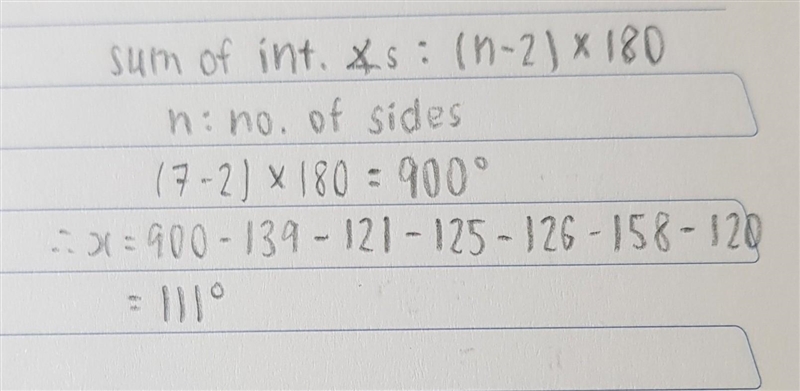 sum of int. ∡s : (n-2) × 180
n: no. of sides
(7-2) × 180 = 900°
∴ x = 900 - 139 - 121 - 125 - 126 - 158 - 120
= 111°